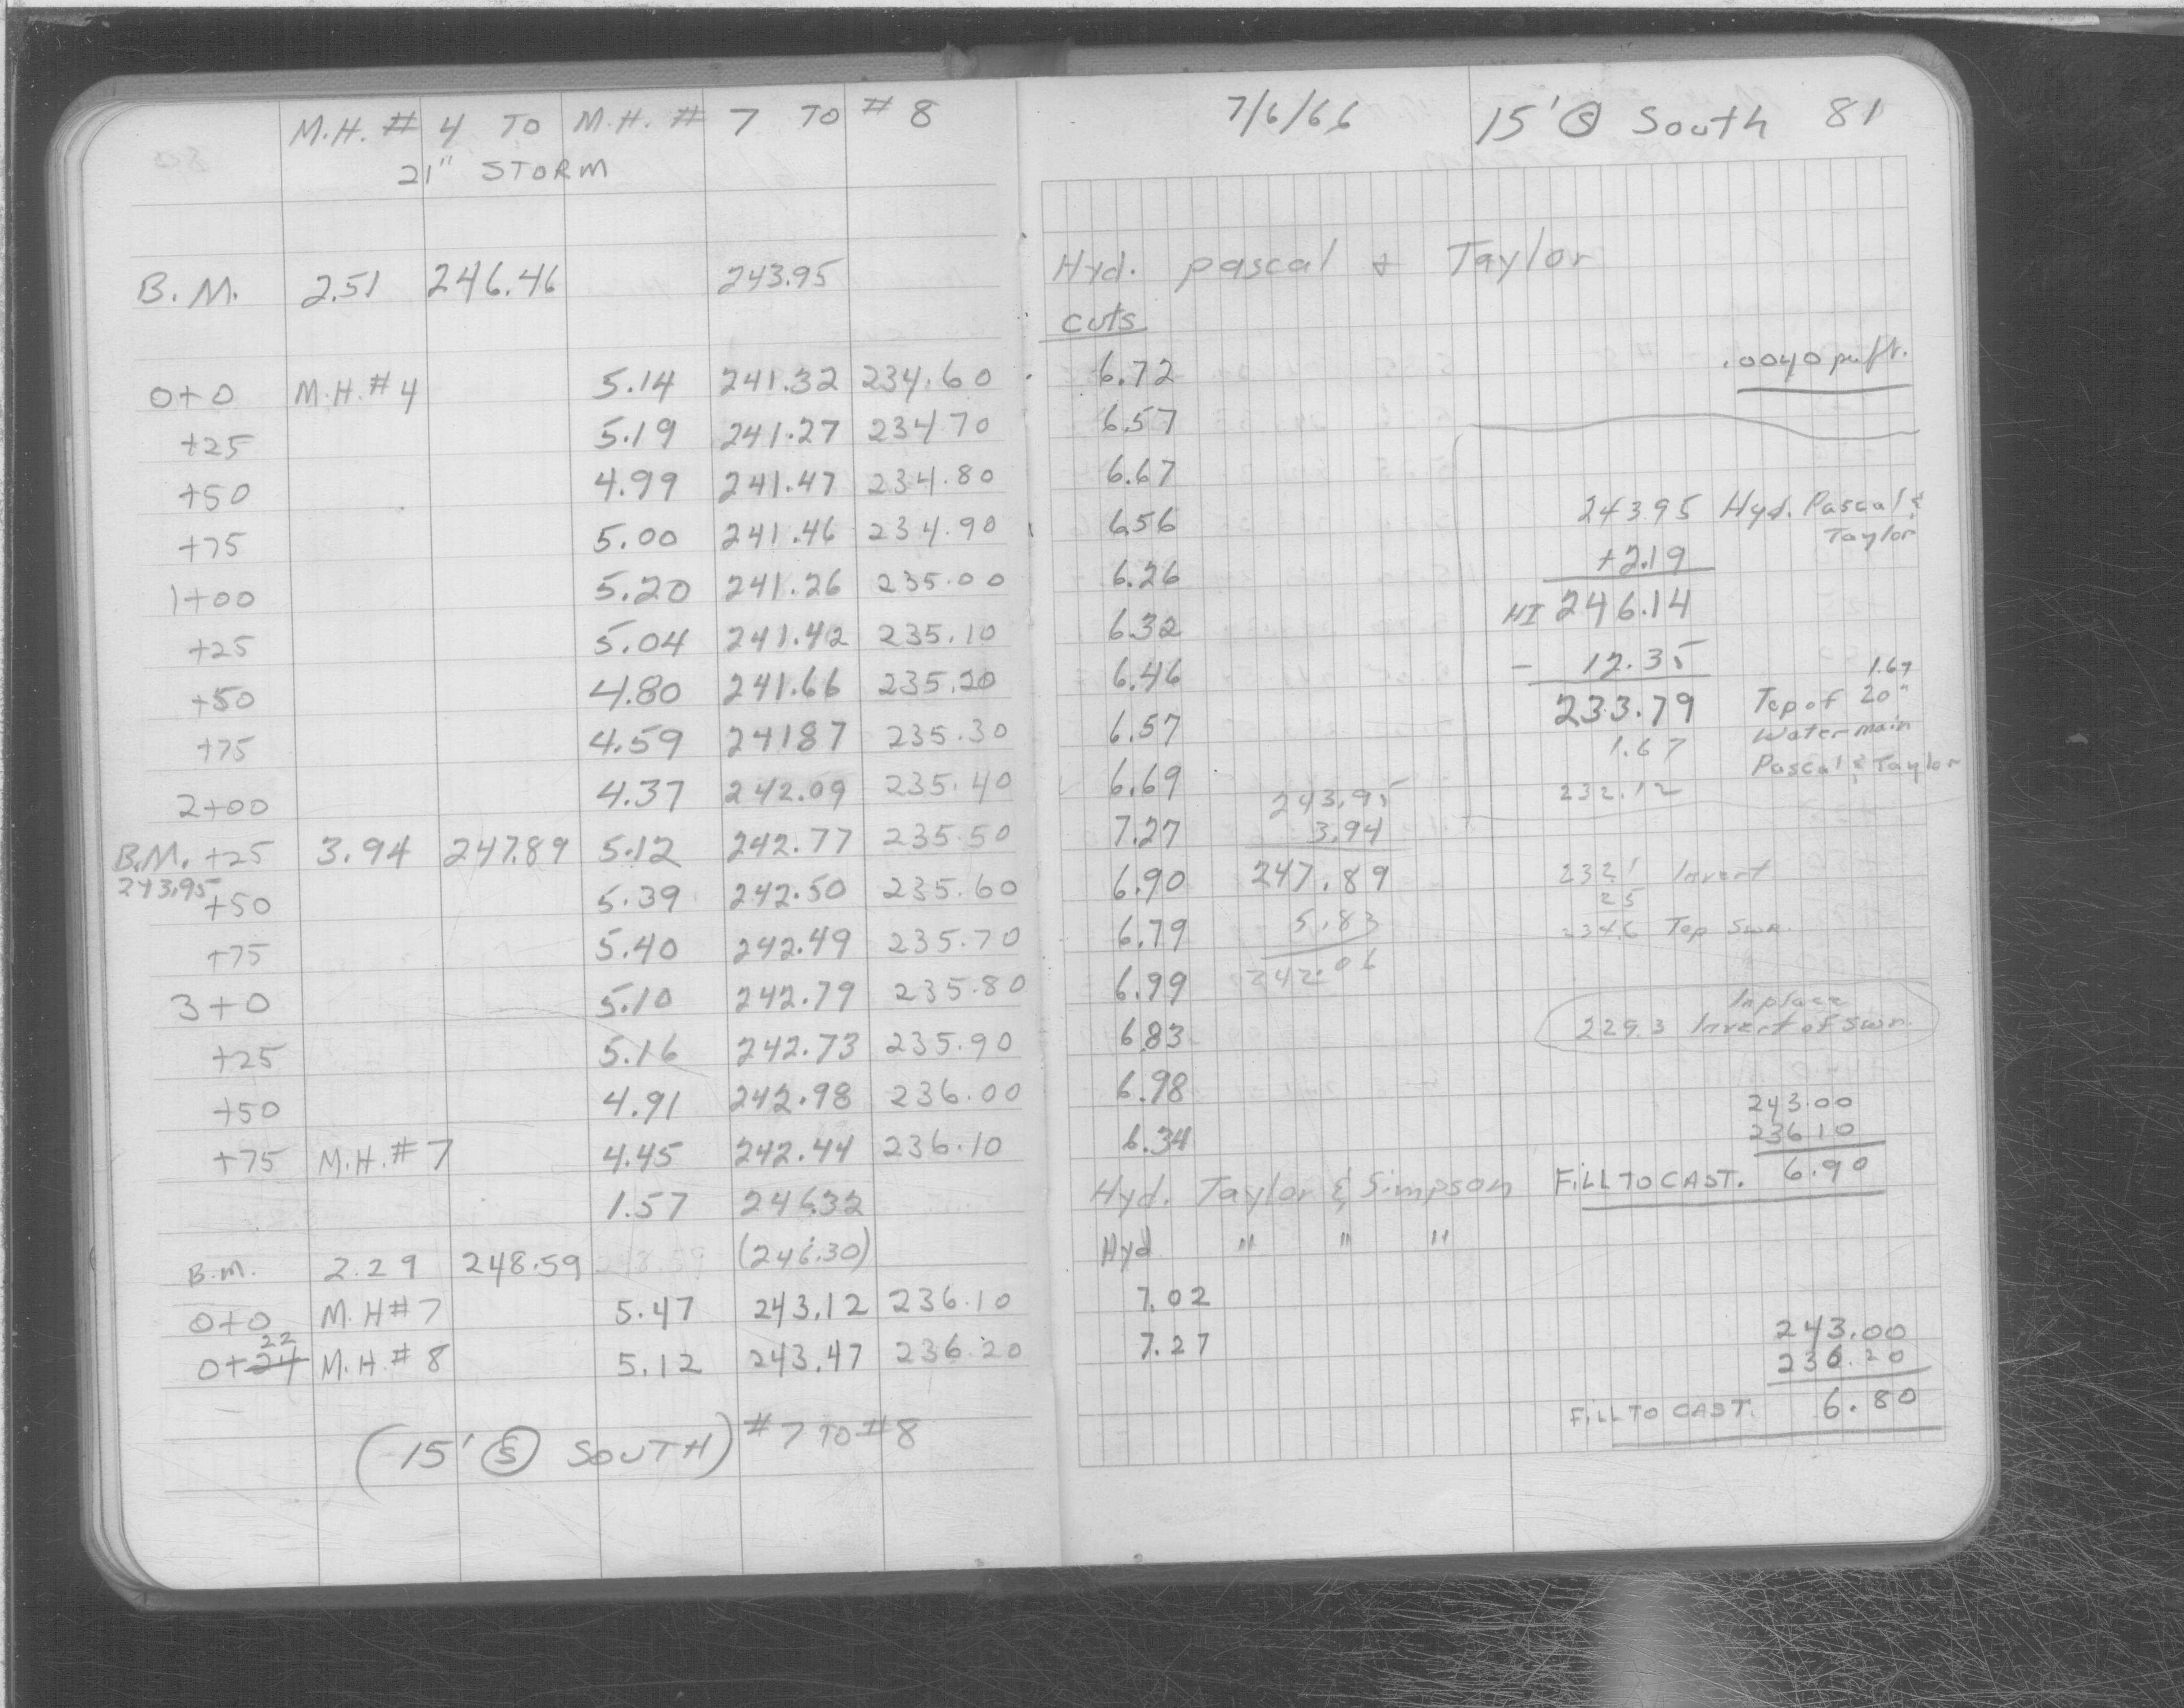 M.H. # 4 TO M.H. # 7 TO # 8
21" STORM
B.M. 2.51 246.46 243.95
0+0 M.H. #4 5.14 241.32 234.60
+25 5.19 241.27 234.70
+50 4.99 241.47 234.80
+75 5.00 241.46 234.90
1+00 5.20 241.26 235.00
+25 5.04 241.42 235.10
+50 4.80 241.66 235.20
+75 4.59 241 87 235.30
2+00 4.37 242.09 235.40
B.M. +25 3.94 247.89 5.12 242.77 235.50
243.95 +50 5.39 242.50 235.60
+75 5.40 242.49 235.70
3+0 5.10 242.79 235.80
+25 5.16 242.73 235.90
+50 4.91 242.98 236.00
+75 M.H. #7 4.45 242.44 236.10
1.57 246.32
B.M. 2.29 248.59 (246.30)
0+0 M.H #7 5.47 243.12 236.10
22
0+24 M.H. #8 5.12 243.47 236.20
(15' S SOUTH) #7 TO #8
7/6/66 15' S South 81
Hyd. pascal & Taylor
cuts
6.72
6.57
6.67
6.56
6.26
6.32
6.46
6.57
6.69
7.27
6.90
6.79
6.99
6.83
6.98
6.34
Hyd. Taylor & Simpson
Hyd " " "
7.02
7.27
243.95
3.94
247.89
5.83
242.06
.0040 per ft.
243.95 Hyd. Pascal &
Taylor
+2.19
HI 246.14
- 12.35
1.67
233.79 Top of 20"
1.67 Water main
Pascal & Taylor
232.12
232.1 Invert
2.5
234.6 Top Swr.
Inplace
229.3 Invert of Swr.
243.00
236.10
FILL TO CAST. 6.90
243.00
236.20
FILL TO CAST. 6.80